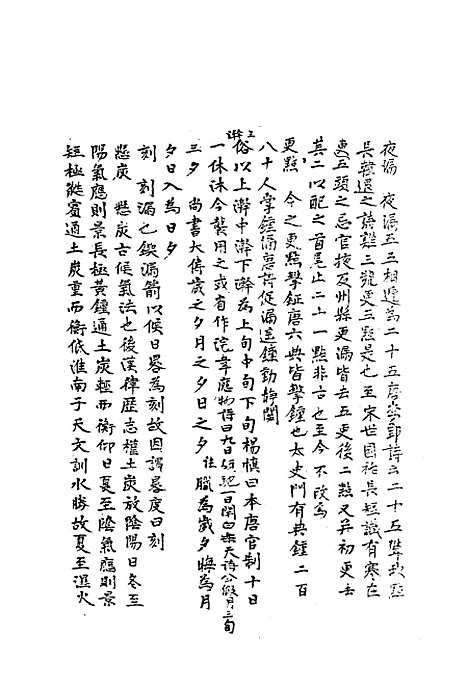 夜漏　夜漏五五相遞為二十五唐李郢詩云二十五聲秋點
長韓退之詩雞三號更三點是也至宋世國祚長短讖有寒在
更五頭之忌官掖及州縣更漏皆去五更後二點又并初更去
其二以配之首尾止二十一點非古也至今不改焉
更點　今之更點擊鉦唐六典皆擊鐘也太史門有典鐘二百
八十人掌鐘漏唐詩促漏遥鐘動靜聞
上澣
俗以上澣中澣下澣為上旬中旬下旬楊慎曰本唐官制十日
一休沐今襲用之或有作浣
三夕　尚書大傳歲之夕月之夕日之夕　為歲夕晦為月
夕日入為日夕
刻　刻漏也鍥漏箭以候日晷為刻故因謂晷度曰刻
懸炭　懸炭古候氣法也後漢律歷志權土炭放陰陽日冬至
陽氣應則景長極黃鍾通土炭輕而衡仰日夏至陰氣應則景
短極蕤賓通土炭重而衡低淮南子天文訓水勝故夏至濕火